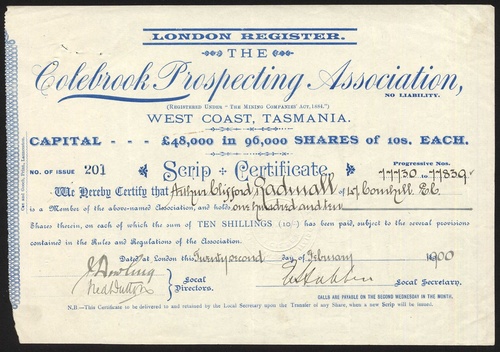 LONDON REGISTER.
THE
Colebrook Prospecting Association,
NO LIABILITY.
(REGISTERED UNDER "THE MINING COMPANIES' ACT, 1884.")
WEST COAST, TASMANIA.
CAPITAL £48,000 in 96,000 SHARES of 10s. EACH.
Progressive Nos.
NO. OF ISSUE 201 Scrip Certificate. 77730 to 77839
We Hereby Certify that Arthur Clifford Sadmall of 47 Cornhill E.C.
is a Member of the above-named Association, and holds one hundred and ten
Shares therein, on each of which the sum of TEN SHILLINGS (10/-) has been paid, subject to the several provisions
contained in the Rules and Regulations of the Association.
Dated at London this Twenty second day of February 1900
J Dowling
Fred Dutton
Local
Directors.
Local Secretary.
CALLS ARE PAYABLE ON THE SECOND WEDNESDAY IN THE MONTH.
N.B.—This Certificate to be delivered to and retained by the Local Secretary upon the Transfer of any Share, when a new Scrip will be issued.